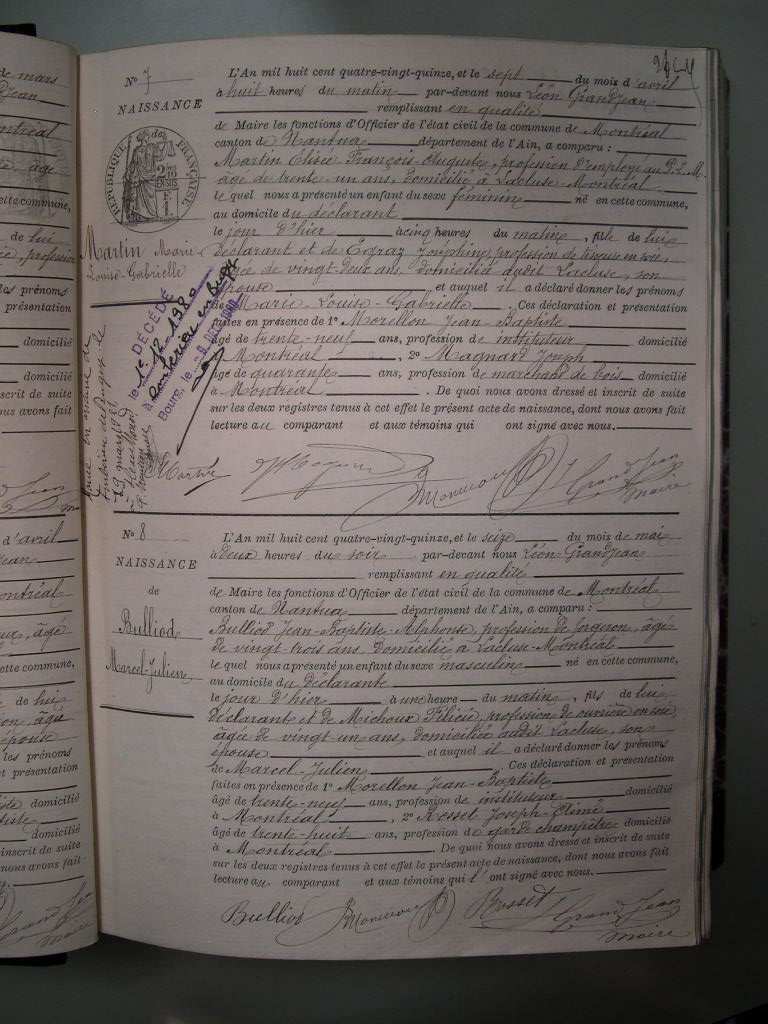 de mars
ontréal
cette commune,
de lui
les prénoms
présentation
domicilié
domicilié
inscrit de suite
nous avons fait
d'avril
ontréal
cette commune,
de lui
épouse
les prénoms
et présentation
domicilié
domicilié
inscrit de suite
nous avons fait
No 7
NAISSANCE
RÉPUBLIQUE FRANÇAISE
Martin Marie
Louise-Gabrielle
DÉCÉDÉ
le 1-12-1980
à
Bourg, le
L'An mil huit cent quatre-vingt-quinze, et le sept du mois d'avril
à huit heures du matin par-devant nous Léon Grandjean
remplissant en qualité
de Maire les fonctions d'Officier de l'état civil de la commune de Montréal
canton de Nantua département de l'Ain, a comparu :
Martin Elisée François-Auguste, profession d'employé au P. L. M.
âgé de trente-un ans, domicilié à Lacluse-Montréal
le quel nous a présenté un enfant du sexe féminin né en cette commune,
au domicile du déclarant
le jour d'hier à cinq heures du matin, fille de lui
déclarant et de Joséphine, profession de
de vingt-deux ans, domiciliée audit Lacluse, son
épouse et auquel il a déclaré donner les prénoms
de Marie Louise-Gabrielle. Ces déclaration et présentation
faites en présence de 1º Morellon Jean-Baptiste
âgé de trente-neuf ans, profession de instituteur domicilié
à Montréal, 2º Magnard Joseph
âgé de quarante ans, profession de marchand de bois domicilié
à Montréal. De quoi nous avons dressé et inscrit de suite
sur les deux registres tenus à cet effet le présent acte de naissance, dont nous avons fait
lecture au comparant et aux témoins qui ont signé avec nous.
Martin
Grand Jean
maire
No 8
NAISSANCE
de
Bulliod
Marcel-Julien
L'An mil huit cent quatre-vingt-quinze, et le seize du mois de mai
à deux heures du soir par-devant nous Léon Grandjean
remplissant en qualité
de Maire les fonctions d'Officier de l'état civil de la commune de Montréal
canton de Nantua département de l'Ain, a comparu :
Bulliod Jean-Baptiste-Alphonse, profession de forgeron, âgé
de vingt-trois ans, domicilié à Lacluse-Montréal
le quel nous a présenté un enfant du sexe masculin né en cette commune,
au domicile du déclarant
le jour d'hier à une heure du matin, fils de lui
déclarant et de Michoux Félicie, profession de ouvrière en soie,
âgée de vingt-un ans, domiciliée audit Lacluse, son
épouse et auquel il a déclaré donner les prénoms
de Marcel-Julien. Ces déclaration et présentation
faites en présence de 1º Morellon Jean-Baptiste
âgé de trente-neuf ans, profession de instituteur domicilié
à Montréal, 2º Rosset Joseph-
âgé de trente-huit ans, profession de garde champêtre domicilié
à Montréal. De quoi nous avons dressé et inscrit de suite
sur les deux registres tenus à cet effet le présent acte de naissance, dont nous avons fait
lecture au comparant et aux témoins qui l' ont signé avec nous.
Bulliod
Rosset
Grand Jean
maire